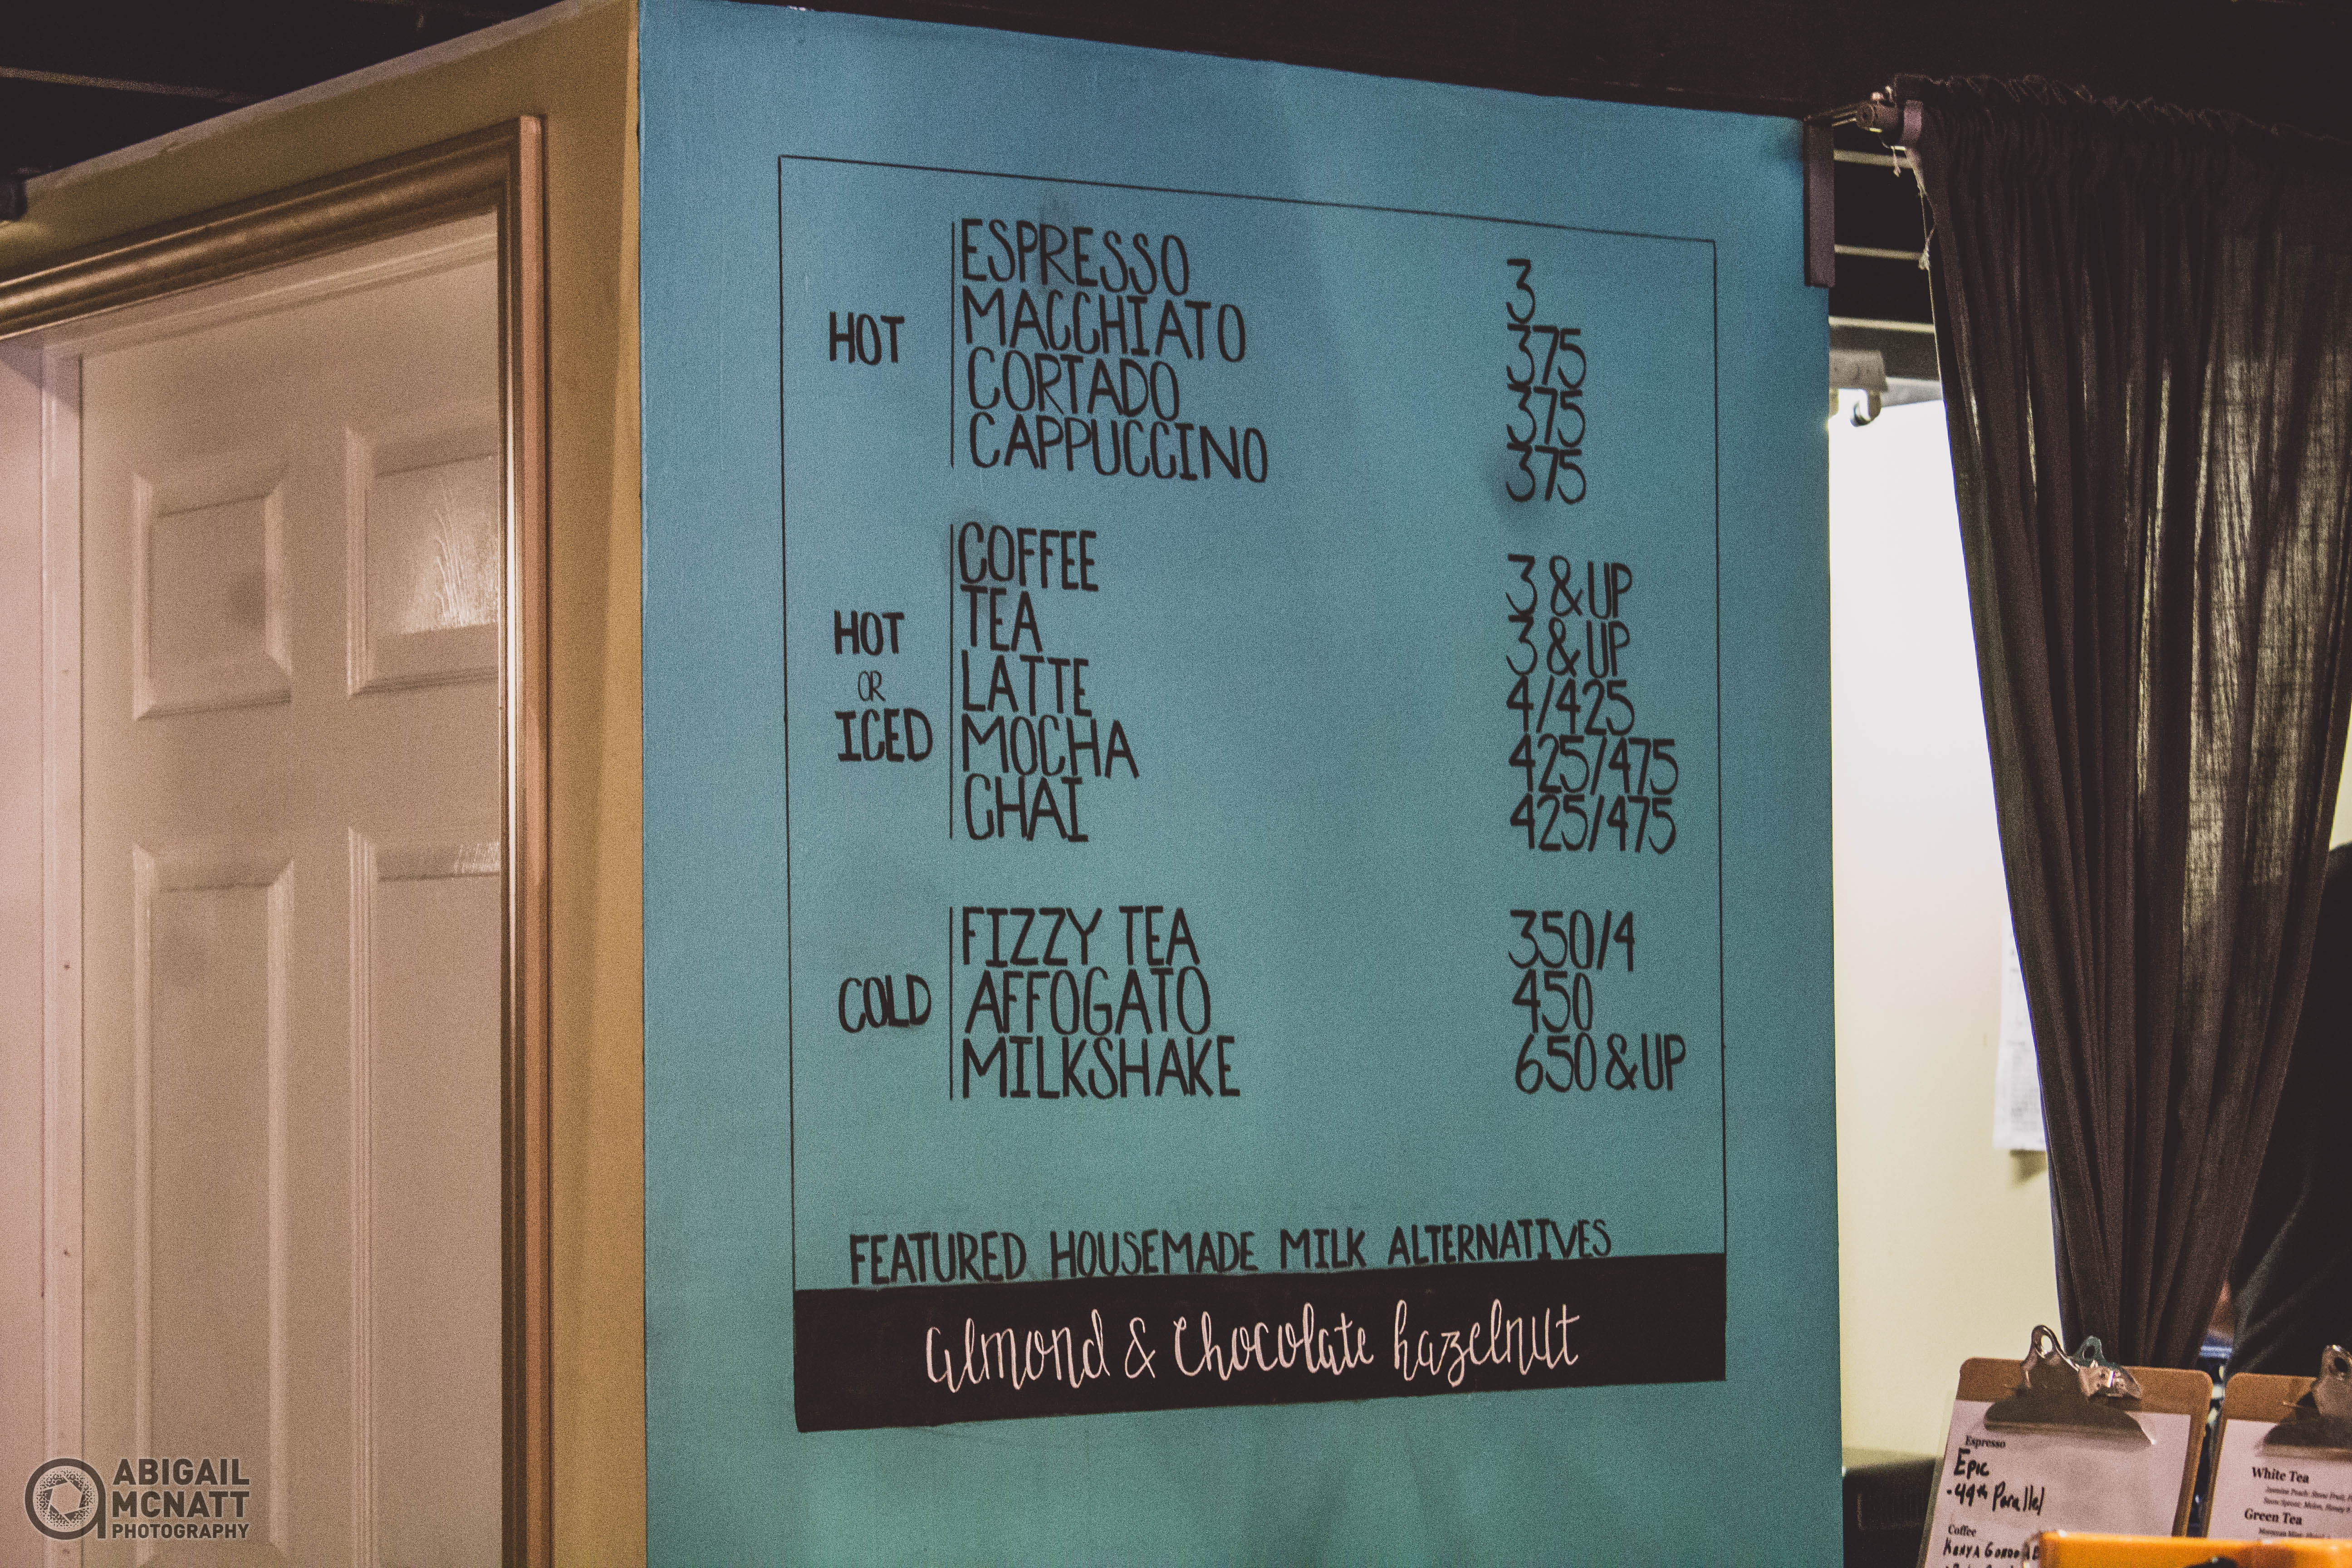 HOT
ESPRESSO 3
MACCHIATO 375
CORTADO 375
CAPPUCCINO 375
HOT
OR
ICED
COFFEE 3 & UP
TEA 3 & UP
LATTE 4/425
MOCHA 425/475
CHAI 425/475
COLD
FIZZY TEA 350/4
AFFOGATO 450
MILKSHAKE 650 & UP
FEATURED HOUSEMADE MILK ALTERNATIVES
almond & chocolate hazelnut
Espresso
Epic
-49th Parallel
Coffee
Kenya
White Tea
Green Tea
ABIGAIL
MCNATT
PHOTOGRAPHY